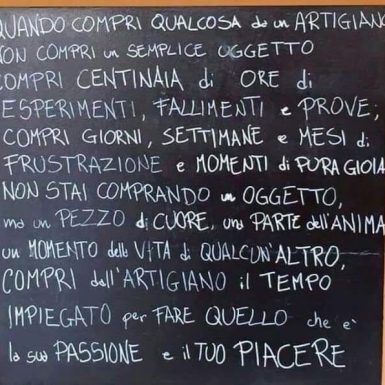 QUANDO COMPRI QUALCOSA da un ARTIGIANO
NON COMPRI un SEMPLICE OGGETTO
COMPRI CENTINAIA di ORE di
ESPERIMENTI, FALLIMENTI e PROVE,
COMPRI GIORNI, SETTIMANE e MESI di
FRUSTRAZIONE e MOMENTI di PURA GIOIA
NON STAI COMPRANDO un OGGETTO,
ma un PEZZO di CUORE, una PARTE dell'ANIMA
un MOMENTO della VITA di QUALCUN'ALTRO,
COMPRI dall'ARTIGIANO il TEMPO
IMPIEGATO per FARE QUELLO che è
la sua PASSIONE e il TUO PIACERE